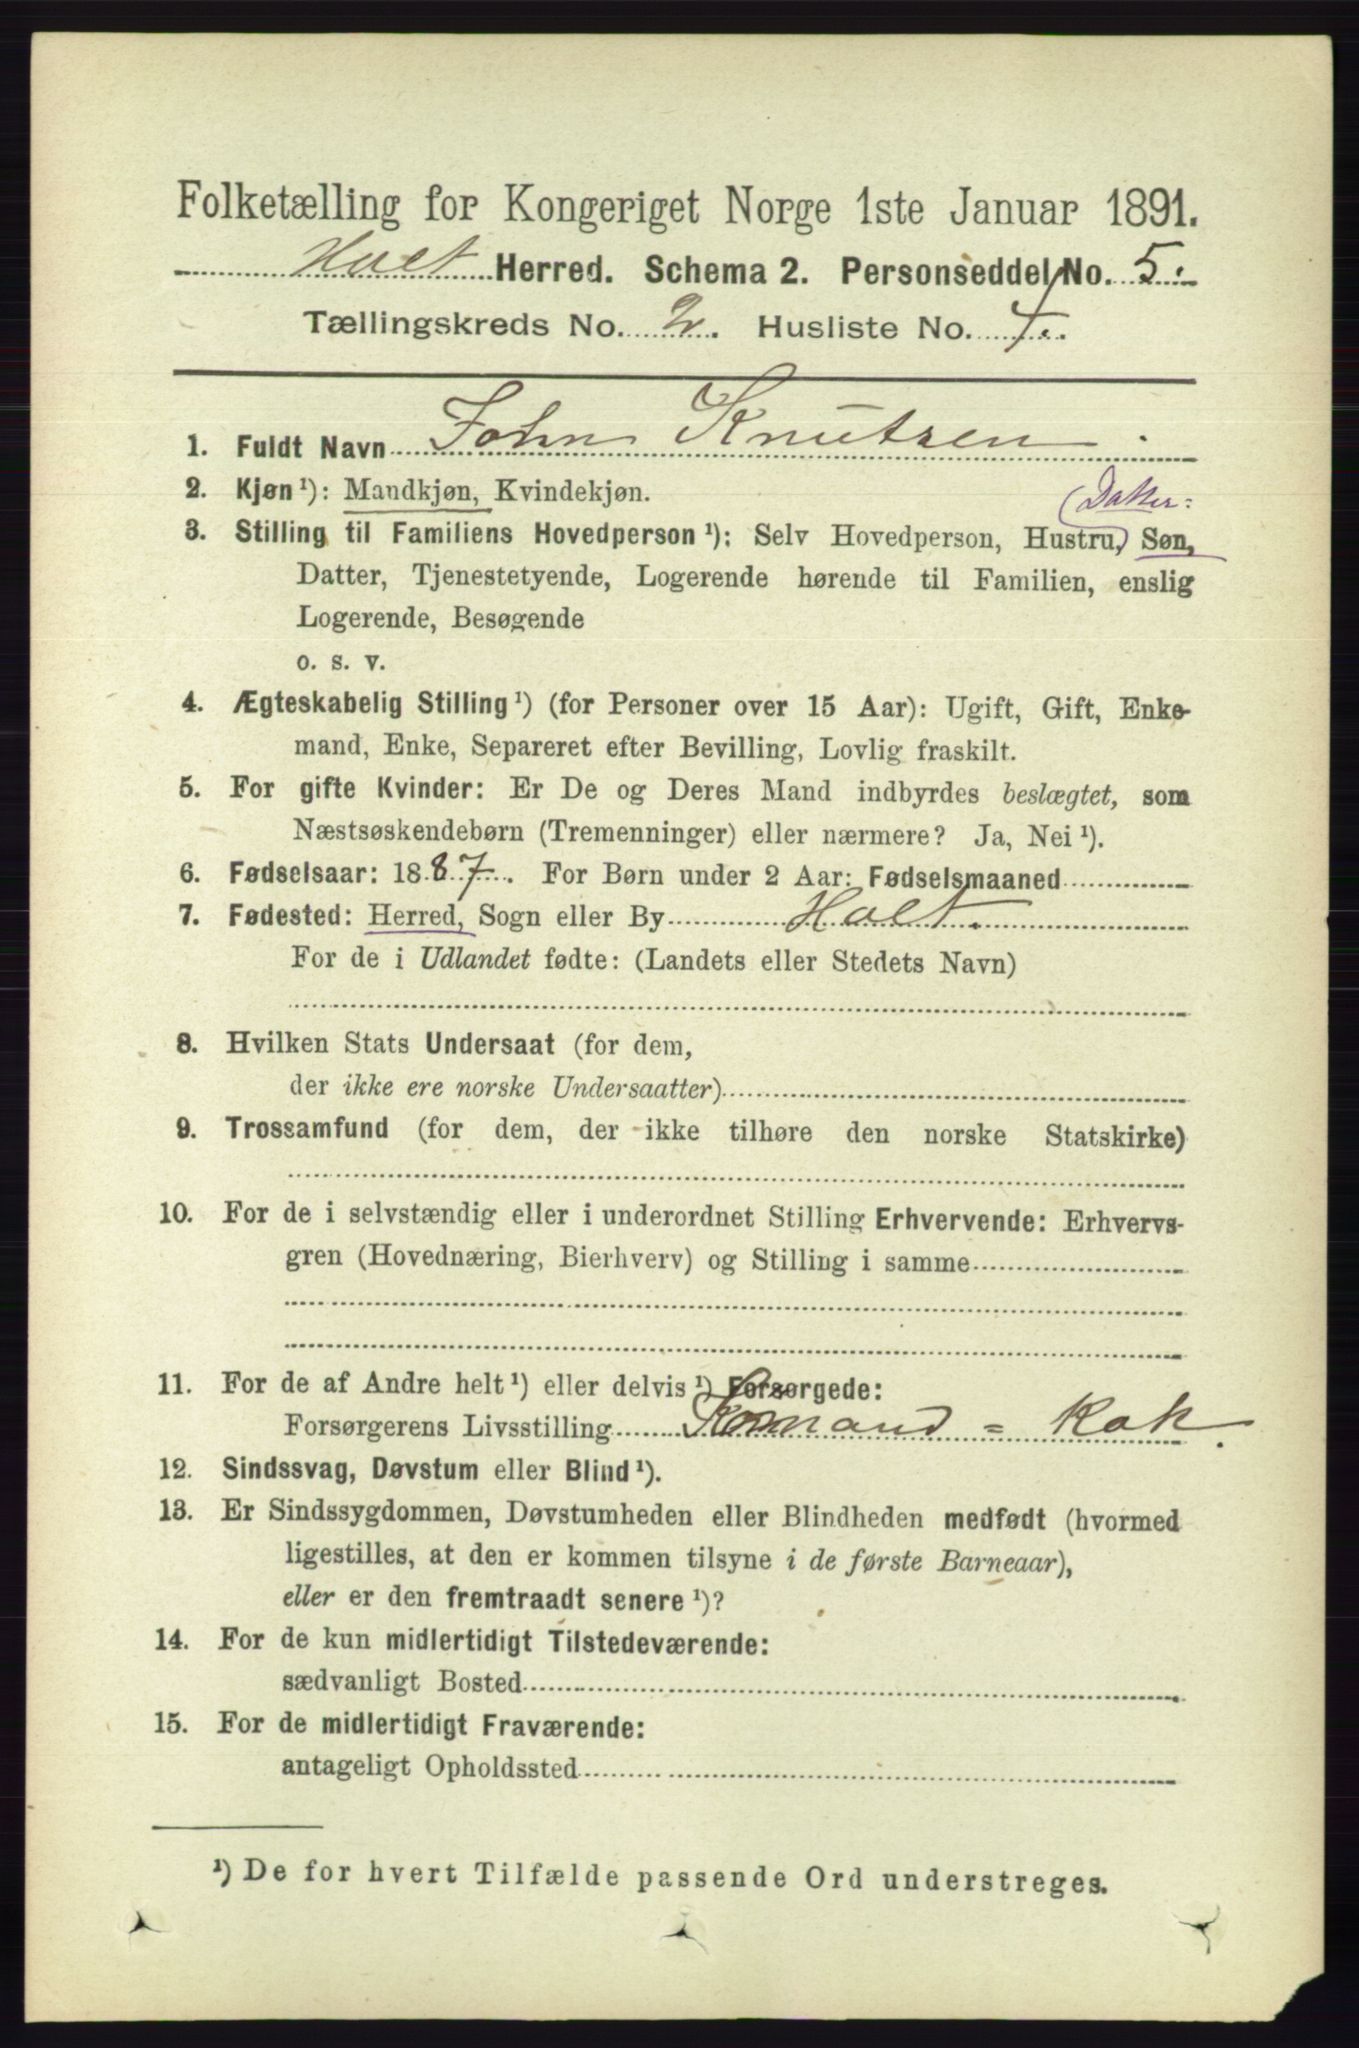 Folketælling for Kongeriget Norge 1ste Januar 1891.
Holt Herred. Schema 2. Personseddel No. 5.
Tællingskreds No. 2. Husliste No. 7.
1. Fuldt Navn John Knutsen.
2. Kjøn¹): Mandkjøn, Kvindekjøn.
Datter:
3. Stilling til Familiens Hovedperson¹): Selv Hovedperson, Hustru, Søn,
Datter, Tjenestetyende, Logerende hørende til Familien, enslig
Logerende, Besøgende
o. s. v.
4. Ægteskabelig Stilling¹) (for Personer over 15 Aar): Ugift, Gift, Enke-
mand, Enke, Separeret efter Bevilling, Lovlig fraskilt.
5. For gifte Kvinder: Er De og Deres Mand indbyrdes beslægtet, som
Næstsøskendebørn (Tremenninger) eller nærmere? Ja, Nei¹).
6. Fødselsaar: 1887. For Børn under 2 Aar: Fødselsmaaned
7. Fødested: Herred, Sogn eller By Holt.
For de i Udlandet fødte: (Landets eller Stedets Navn)
8. Hvilken Stats Undersaat (for dem,
der ikke ere norske Undersaatter)
9. Trossamfund (for dem, der ikke tilhøre den norske Statskirke)
10. For de i selvstændig eller i underordnet Stilling Erhvervende: Erhvervs-
gren (Hovednæring, Bierhverv) og Stilling i samme
11. For de af Andre helt¹) eller delvis¹) Forsørgede:
Forsørgerens Livsstilling = Kok.
12. Sindssvag, Døvstum eller Blind¹).
13. Er Sindssygdommen, Døvstumheden eller Blindheden medfødt (hvormed
ligestilles, at den er kommen tilsyne i de første Barneaar),
eller er den fremtraadt senere¹)?
14. For de kun midlertidigt Tilstedeværende:
sædvanligt Bosted
15. For de midlertidigt Fraværende:
antageligt Opholdssted
¹) De for hvert Tilfælde passende Ord understreges.